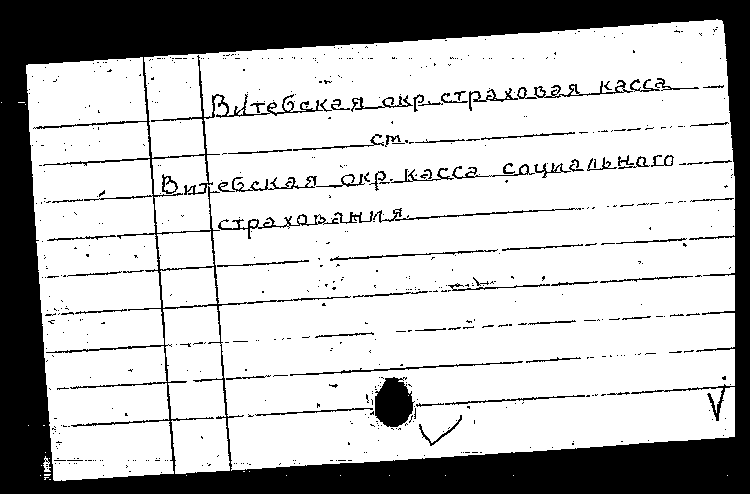 Витебская окр. страховая касса
см.
Витебская окр. касса социального
страхования.